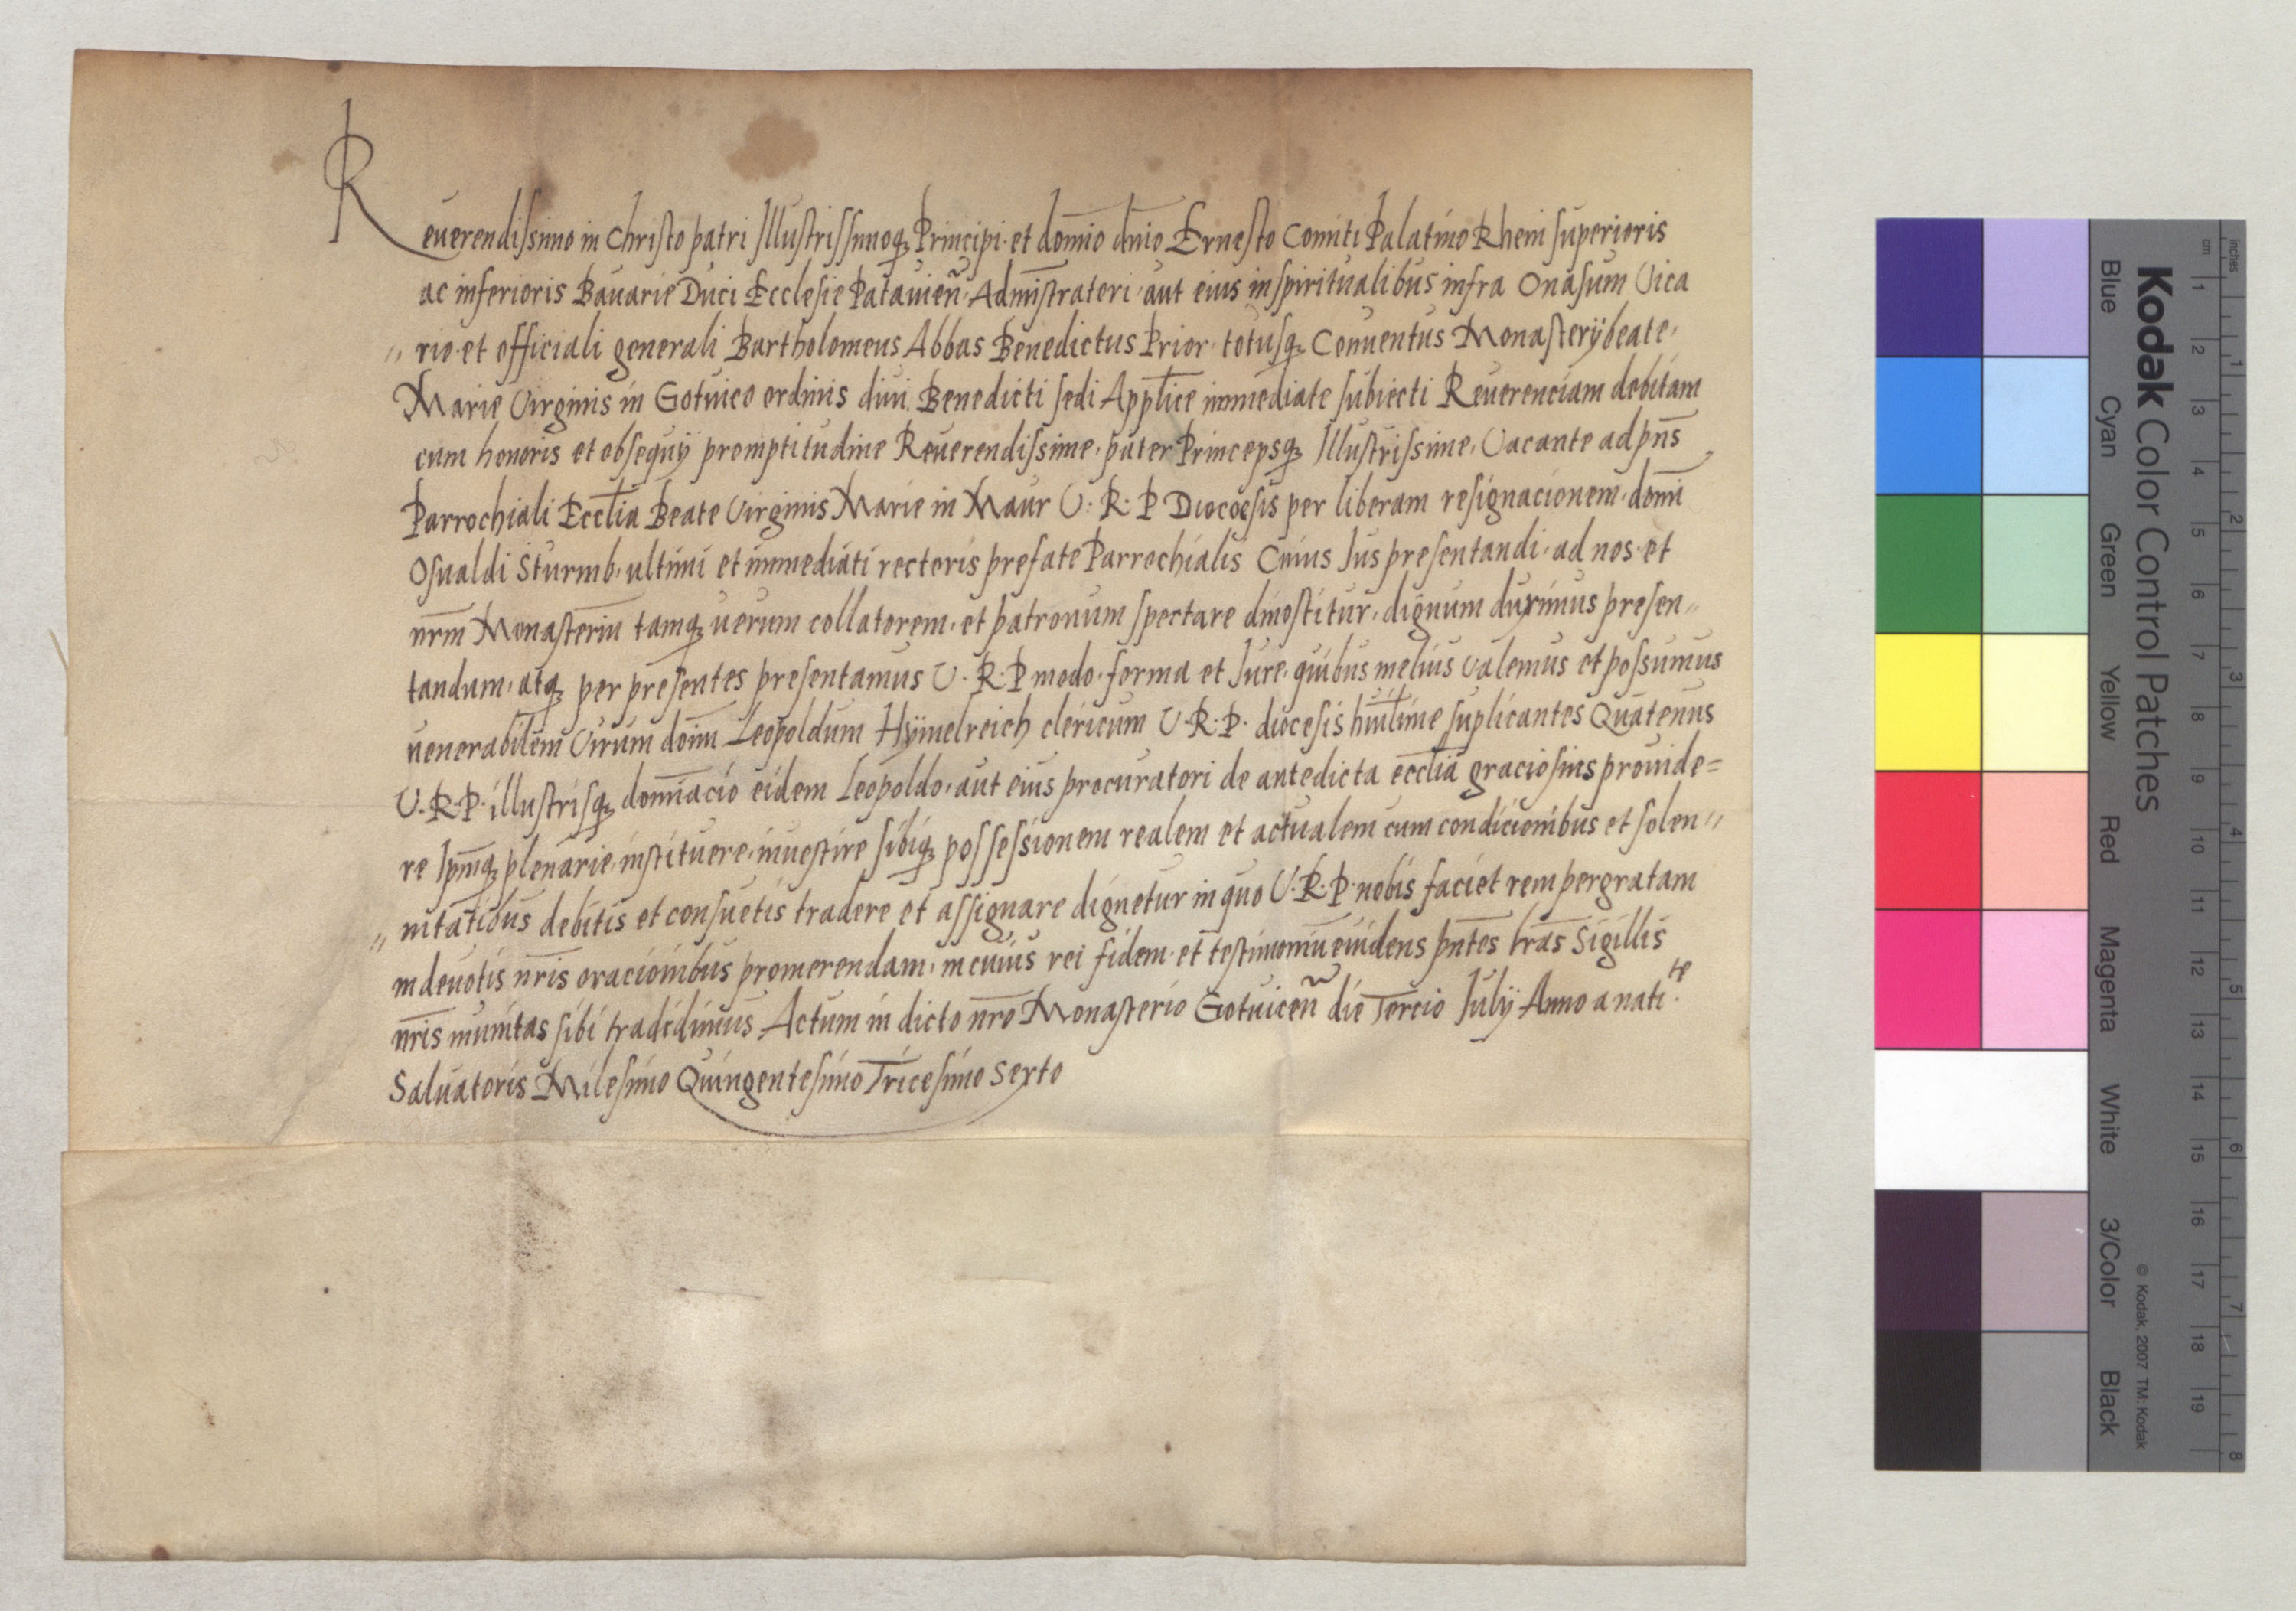 Reuerendissimo in Christo patri Illustrissimoqꝫ Principi et domīo dn̄io Ernesto Comiti Palatino Rheni superioris
ac inferioris Bavarie Duci Ecclesie Patavien̄ Admīstratori aut eius in spiritualibus infra Onasum Vica
〃 rio et officiali generali Bartholomeus Abbas Benedictus Prior totusqꝫ Conuentus Monasterÿ beate
Marie Virginis in Gotuico ordinis diui Benedicti sedi Appl̄ice immediate subiecti Reuerenciam debitam
cum honoris et obsequÿ promptitudine Reuerendissime pater Princepsqꝫ Illustrissime, Vacante ad pn̄s
Parrochiali Eccl̄ia Beate Virginis Marie in Maur V. R. P Diocoesis per liberam resignacionem domī
Osualdi Sturmb ultimi et immediati rectoris prefate Parrochialis Cuius Jus presentandi ad nos et
nr̄m Monasteriū tamqꝫ uerum collatorem et patronum spectare dinostitur, dignum duximus presen〃
tandum atqꝫ per presentes presentamus V. R. P modo forma et Jure quibus melius valemus et possumus
uenerabilem Virum domī Leopoldum Hÿmelreich clericum V. R. P. diocesis humil̄ime suplicantes Quatenus
V. R. P. illustrisqꝫ domīacio eidem Leopoldo aut eius procuratori de antedicta eccl̄ia graciosius prouide=
re Ipm̄qꝫ plenarie instituere inuestire sibiqꝫ possessionem realem et actualem cum condicionibus et solen〃
〃 nitatibus debitis et consuetis tradere et assignare dignetur in quo V. R. P. nobis faciet rem pergratam
in deuotis nr̄is oracionibus promerendam, in cuius rei fidem et testimoniū euidens pn̄tes lr̄as Sigillis
nr̄is munitas sibi tradidimus Actum in dicto nr̄o Monasterio Gotuicen̄ die Tercio Julÿ Anno a nati.te
Saluatoris Milesimo Quingentesimo Tricesimo Sexto
Kodak Color Control Patches
Blue Cyan Green Yellow Red Magenta White 3/Color Black
© Kodak, 2007 TM: Kodak
inches 1 2 3 4 5 6 7 8
cm 1 2 3 4 5 6 7 8 9 10 11 12 13 14 15 16 17 18 19